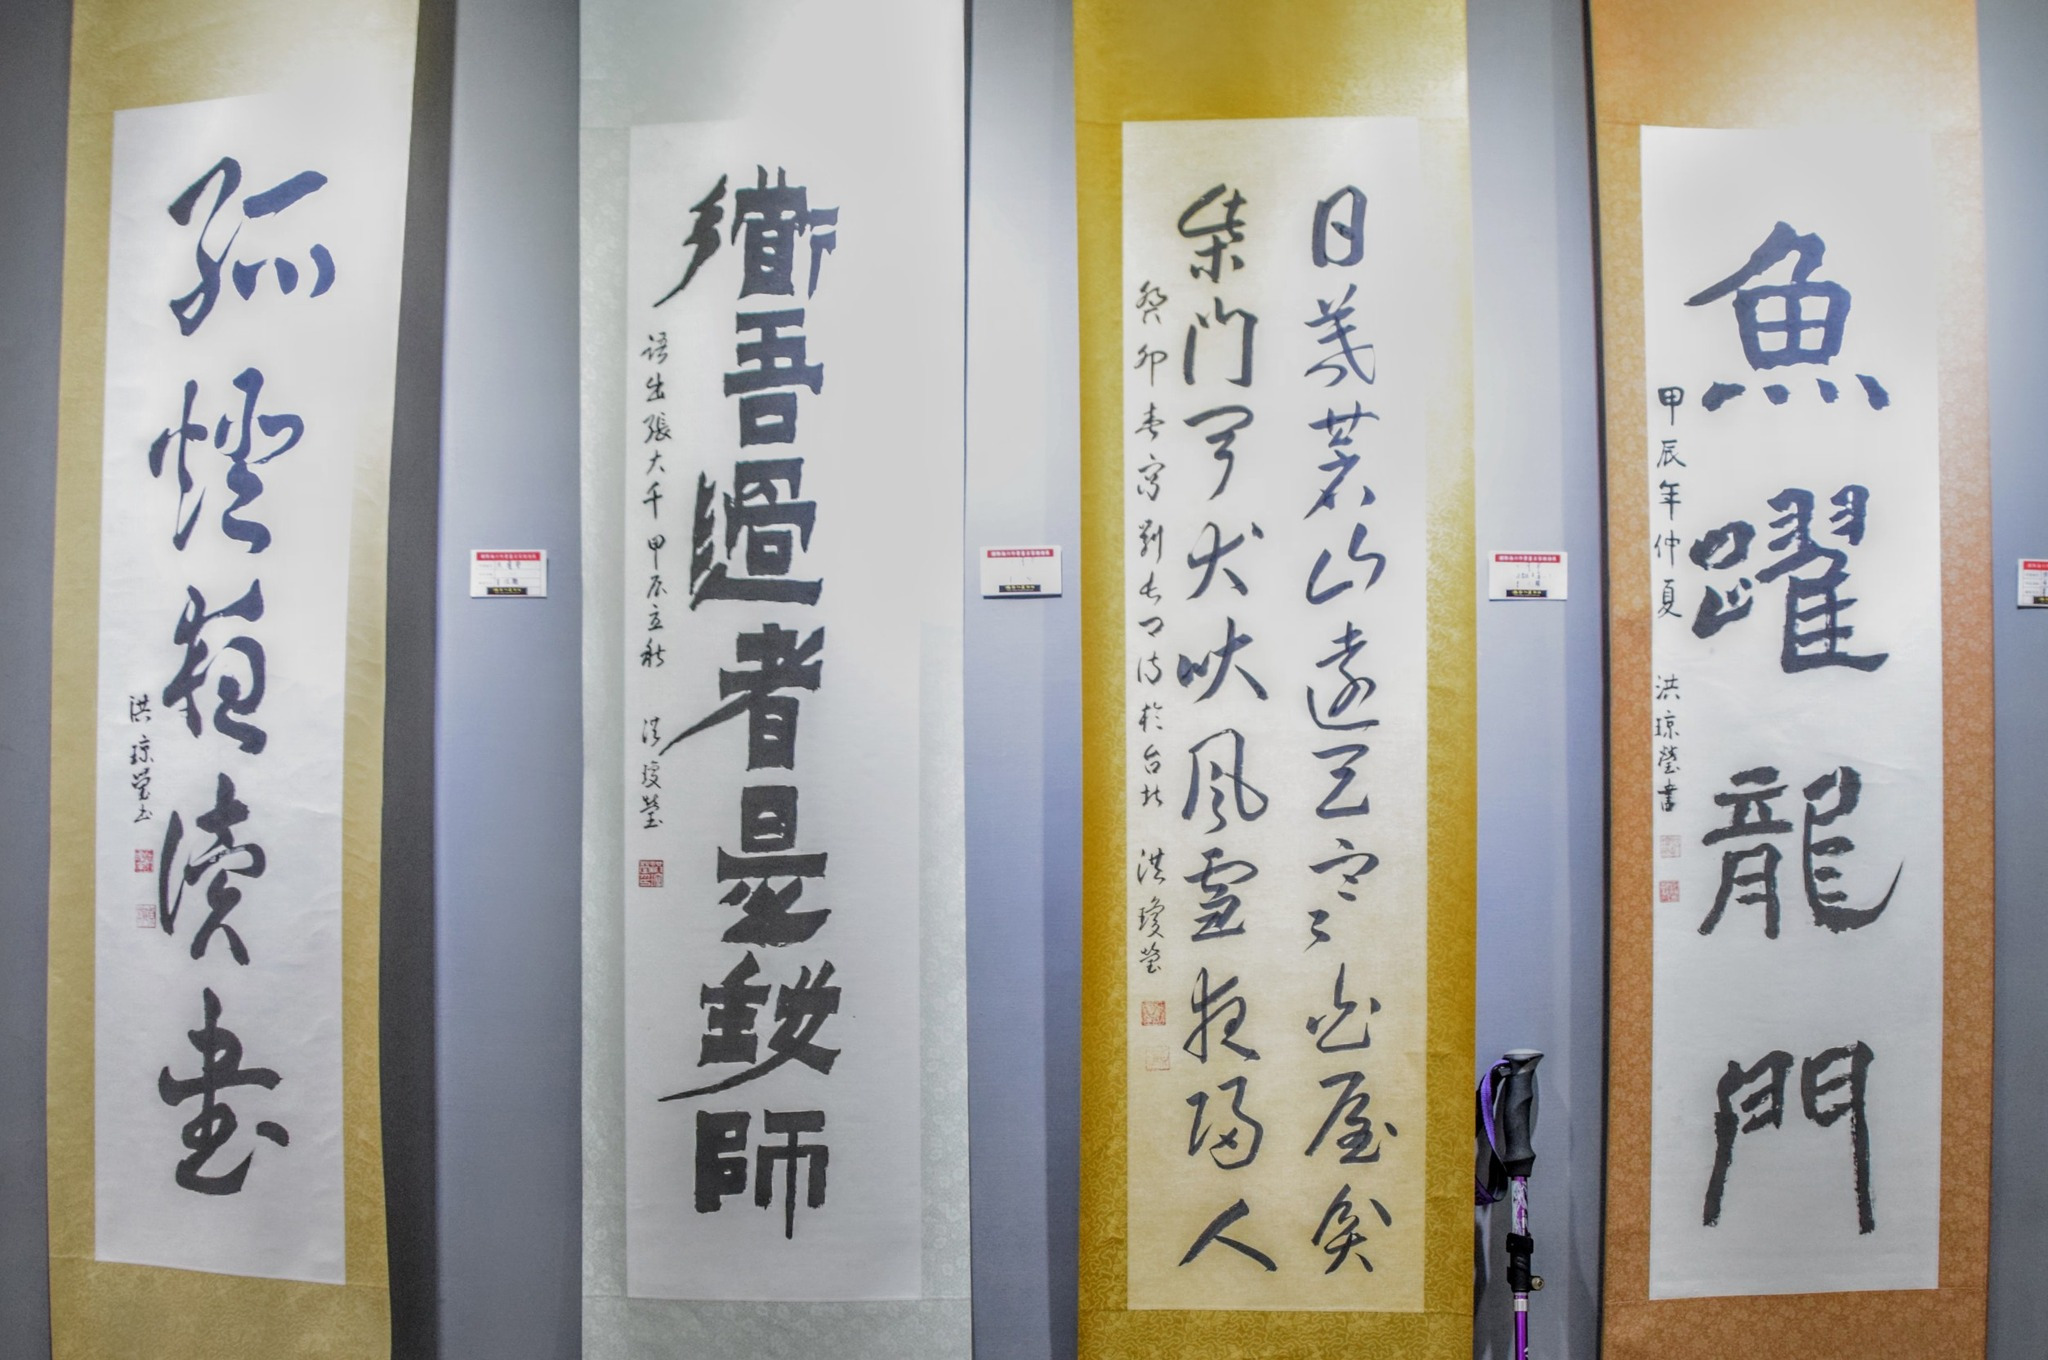 魚躍龍門
甲辰年仲夏 洪琼瑩書
日暮蒼山遠天寒白屋貧
柴門聞犬吠風雪夜歸人
癸卯春寫劉長卿詩於台北 洪瓊瑩
衜吾過者是師
語出張大千甲辰立秋 洪瓊瑩
孤燈讀書
洪琼瑩书